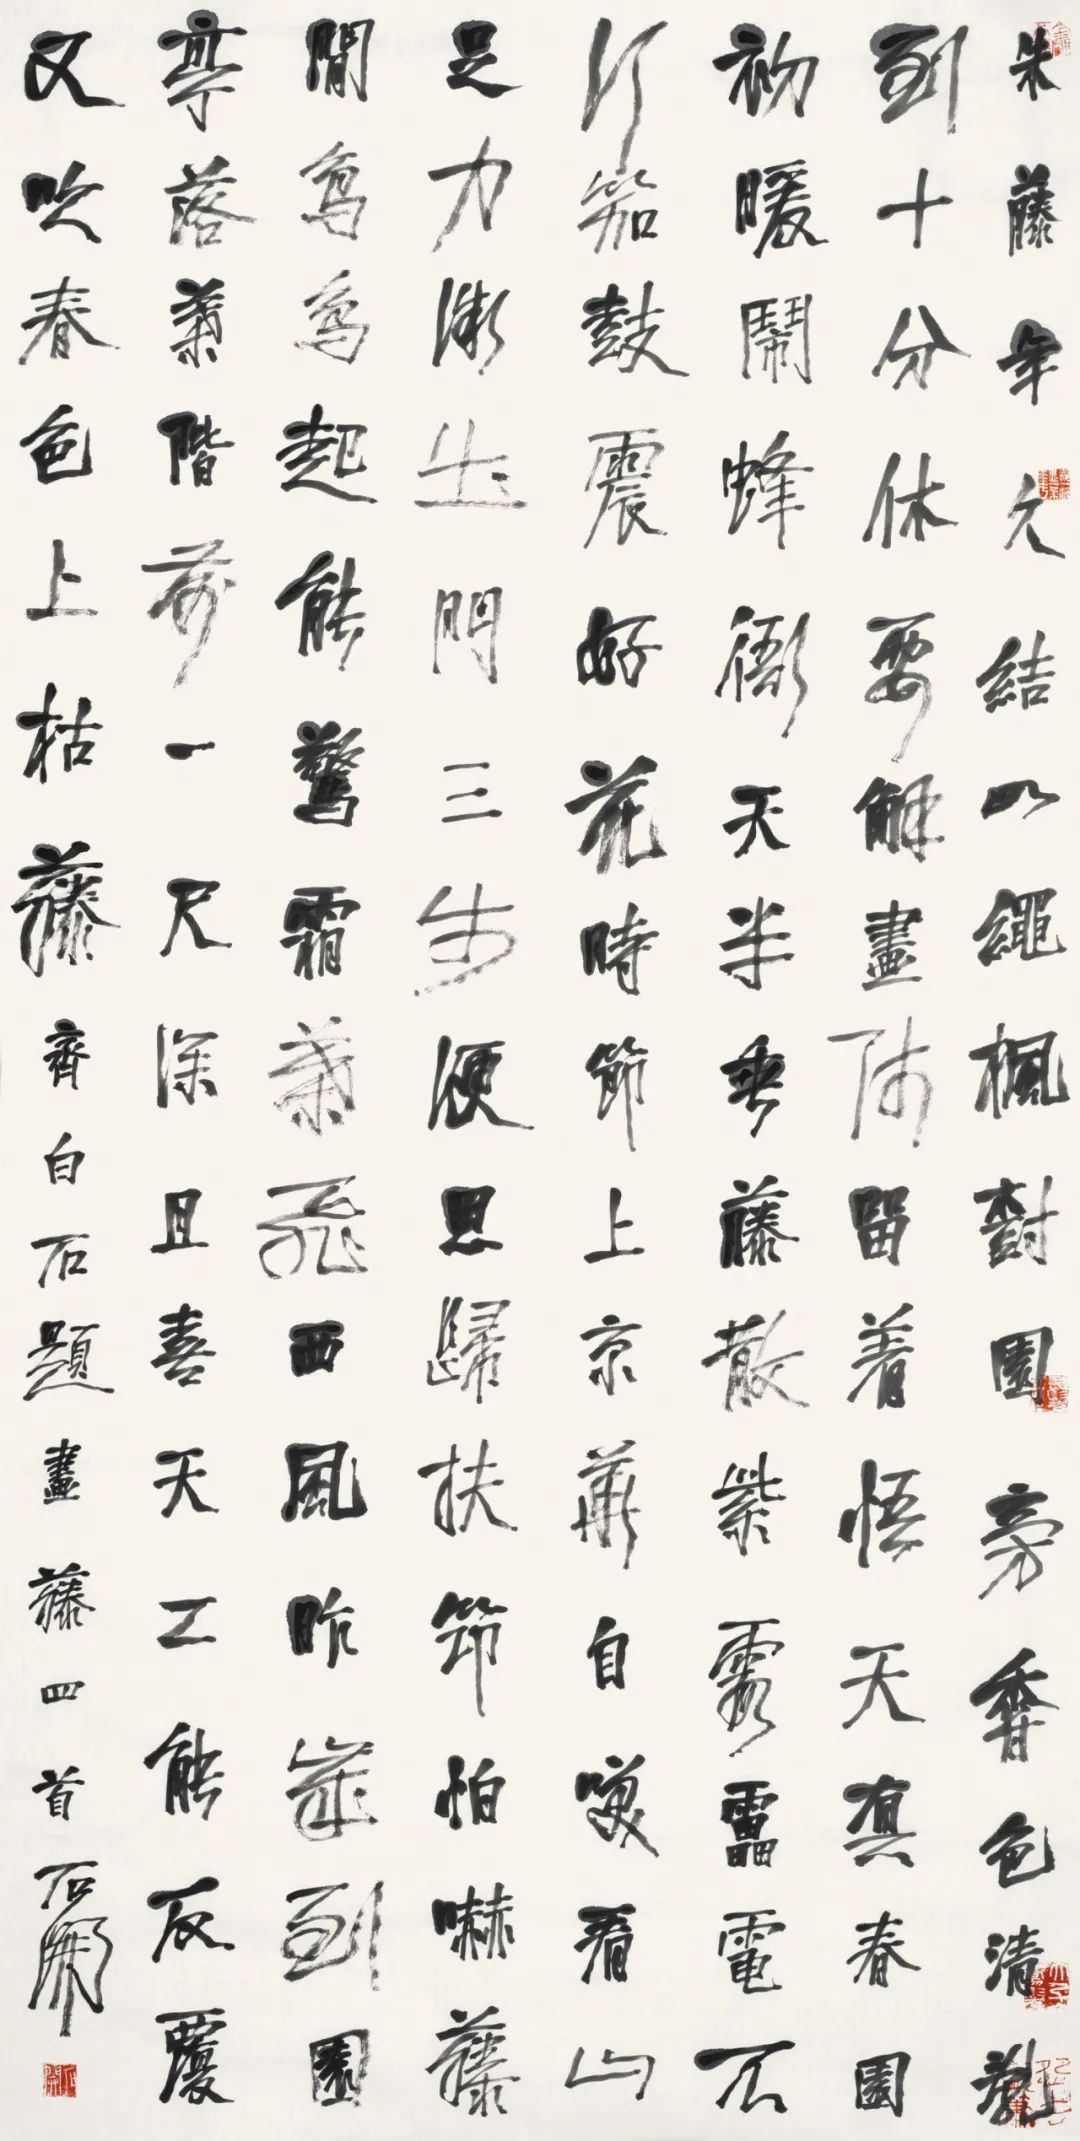 朱藤年久結如繩楓樹園旁香色清亂
到十分休要解畫師留着悟天真春園
初暖鬧蜂衙天半垂藤散紫霞雷電不
行笳鼓震好花時節上京華自嘆看山
足力微出門三步便思歸扶筇怕嚇藤
間鳥鳥起能驚霜葉飛西風昨歲到園
亭落葉階前一尺深且喜天工能反覆
又吹春色上枯藤齊白石題畫藤四首石開